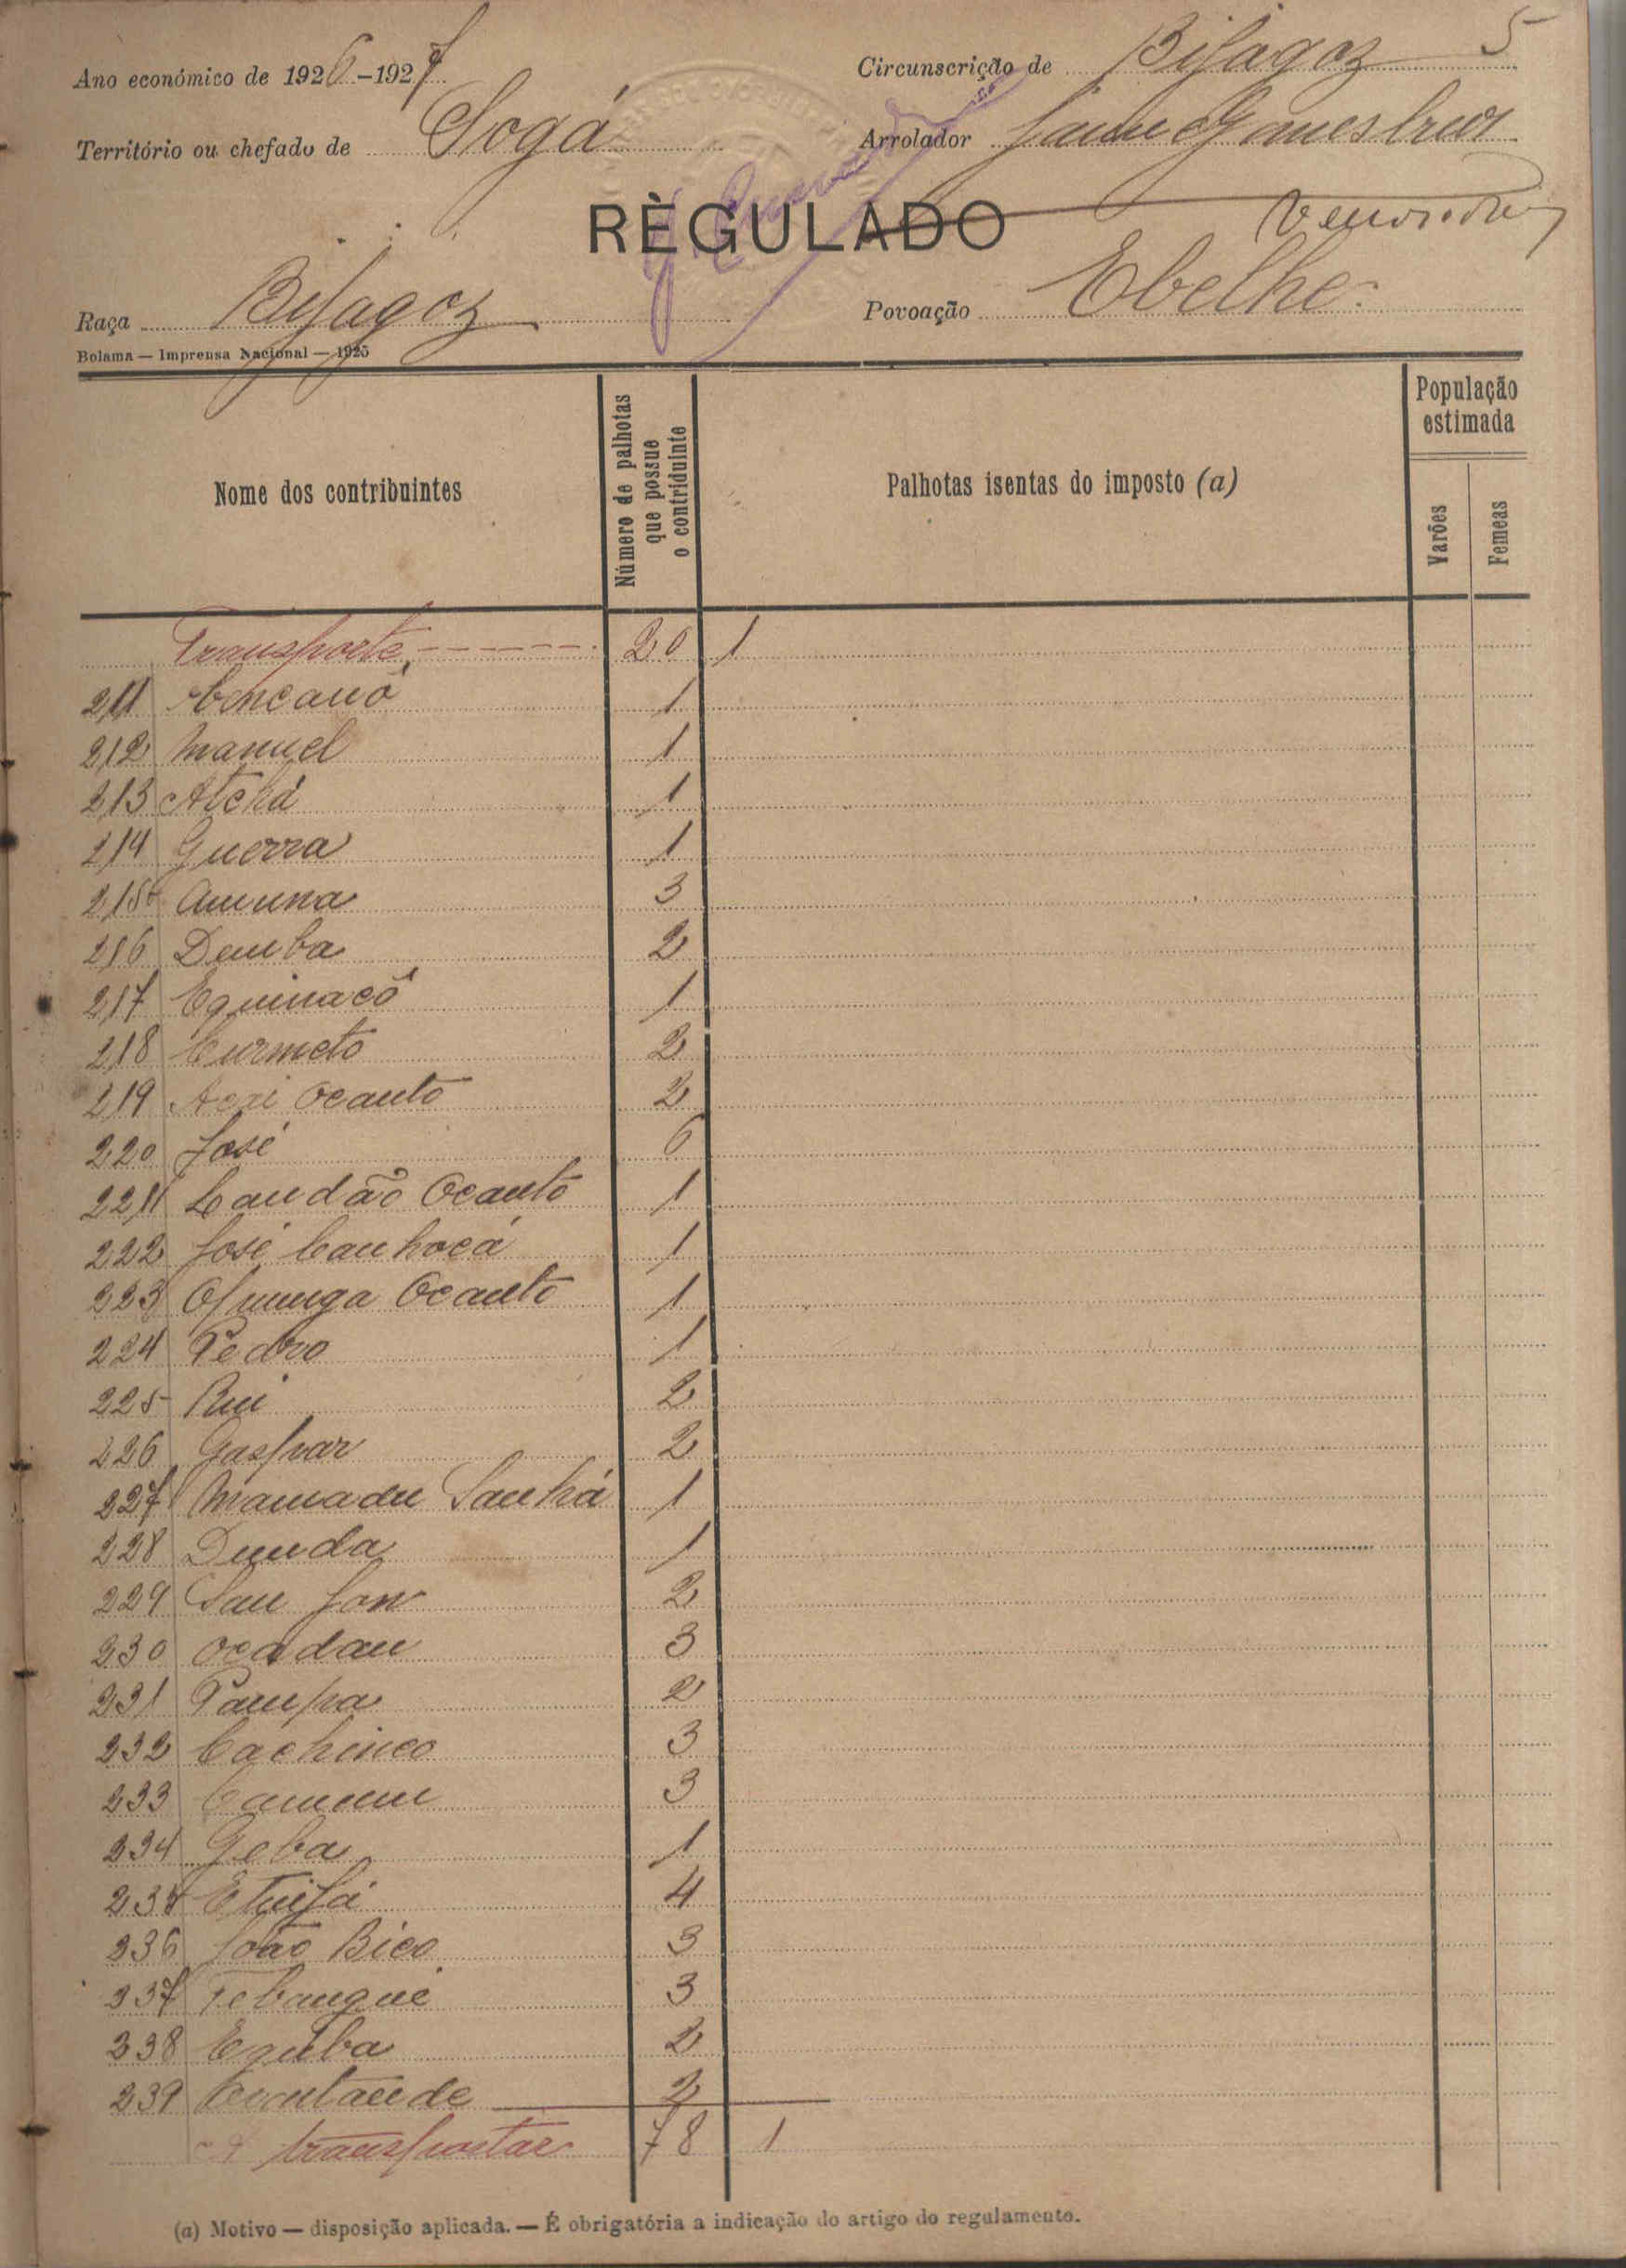 5
Ano económico de 1926-1927
Circunscrição de Bijagoz
Território ou chefado de Sogá
Arrolador Jaime Gomes
RÈGULADO
Raça Bijagoz
Povoação Ebelhe
Bolama — Imprensa Nacional — 1925
Nome dos contribuintes
Número de palhotas que possue o contriduinte
Palhotas isentas do imposto (a)
População estimada
Varões
Femeas
Transporte 20 1
211 Cencanó 1
212 Manuel 1
213 Atchá 1
214 Guerra 1
215 Amuna 3
216 Demba 2
217 Equinacó 1
218 Curmeto 2
219 Ocanto 2
220 José 6
221 Candão Ocanto 1
222 José Canhocá 1
223 Ocanto 1
224 Pedro 1
225 Rui 2
226 Gaspar 2
227 Mamadu Sanhá 1
228 Dunda 1
229 San Jon 2
230 Ocadan 3
231 Pampa 2
232 Cachinco 3
233 3
234 Geba 1
235 4
236 João Bico 3
237 Tebangue 3
238 Equba 2
239 2
A transportar 78 1
(a) Motivo — disposição aplicada. — É obrigatória a indicação do artigo do regulamento.